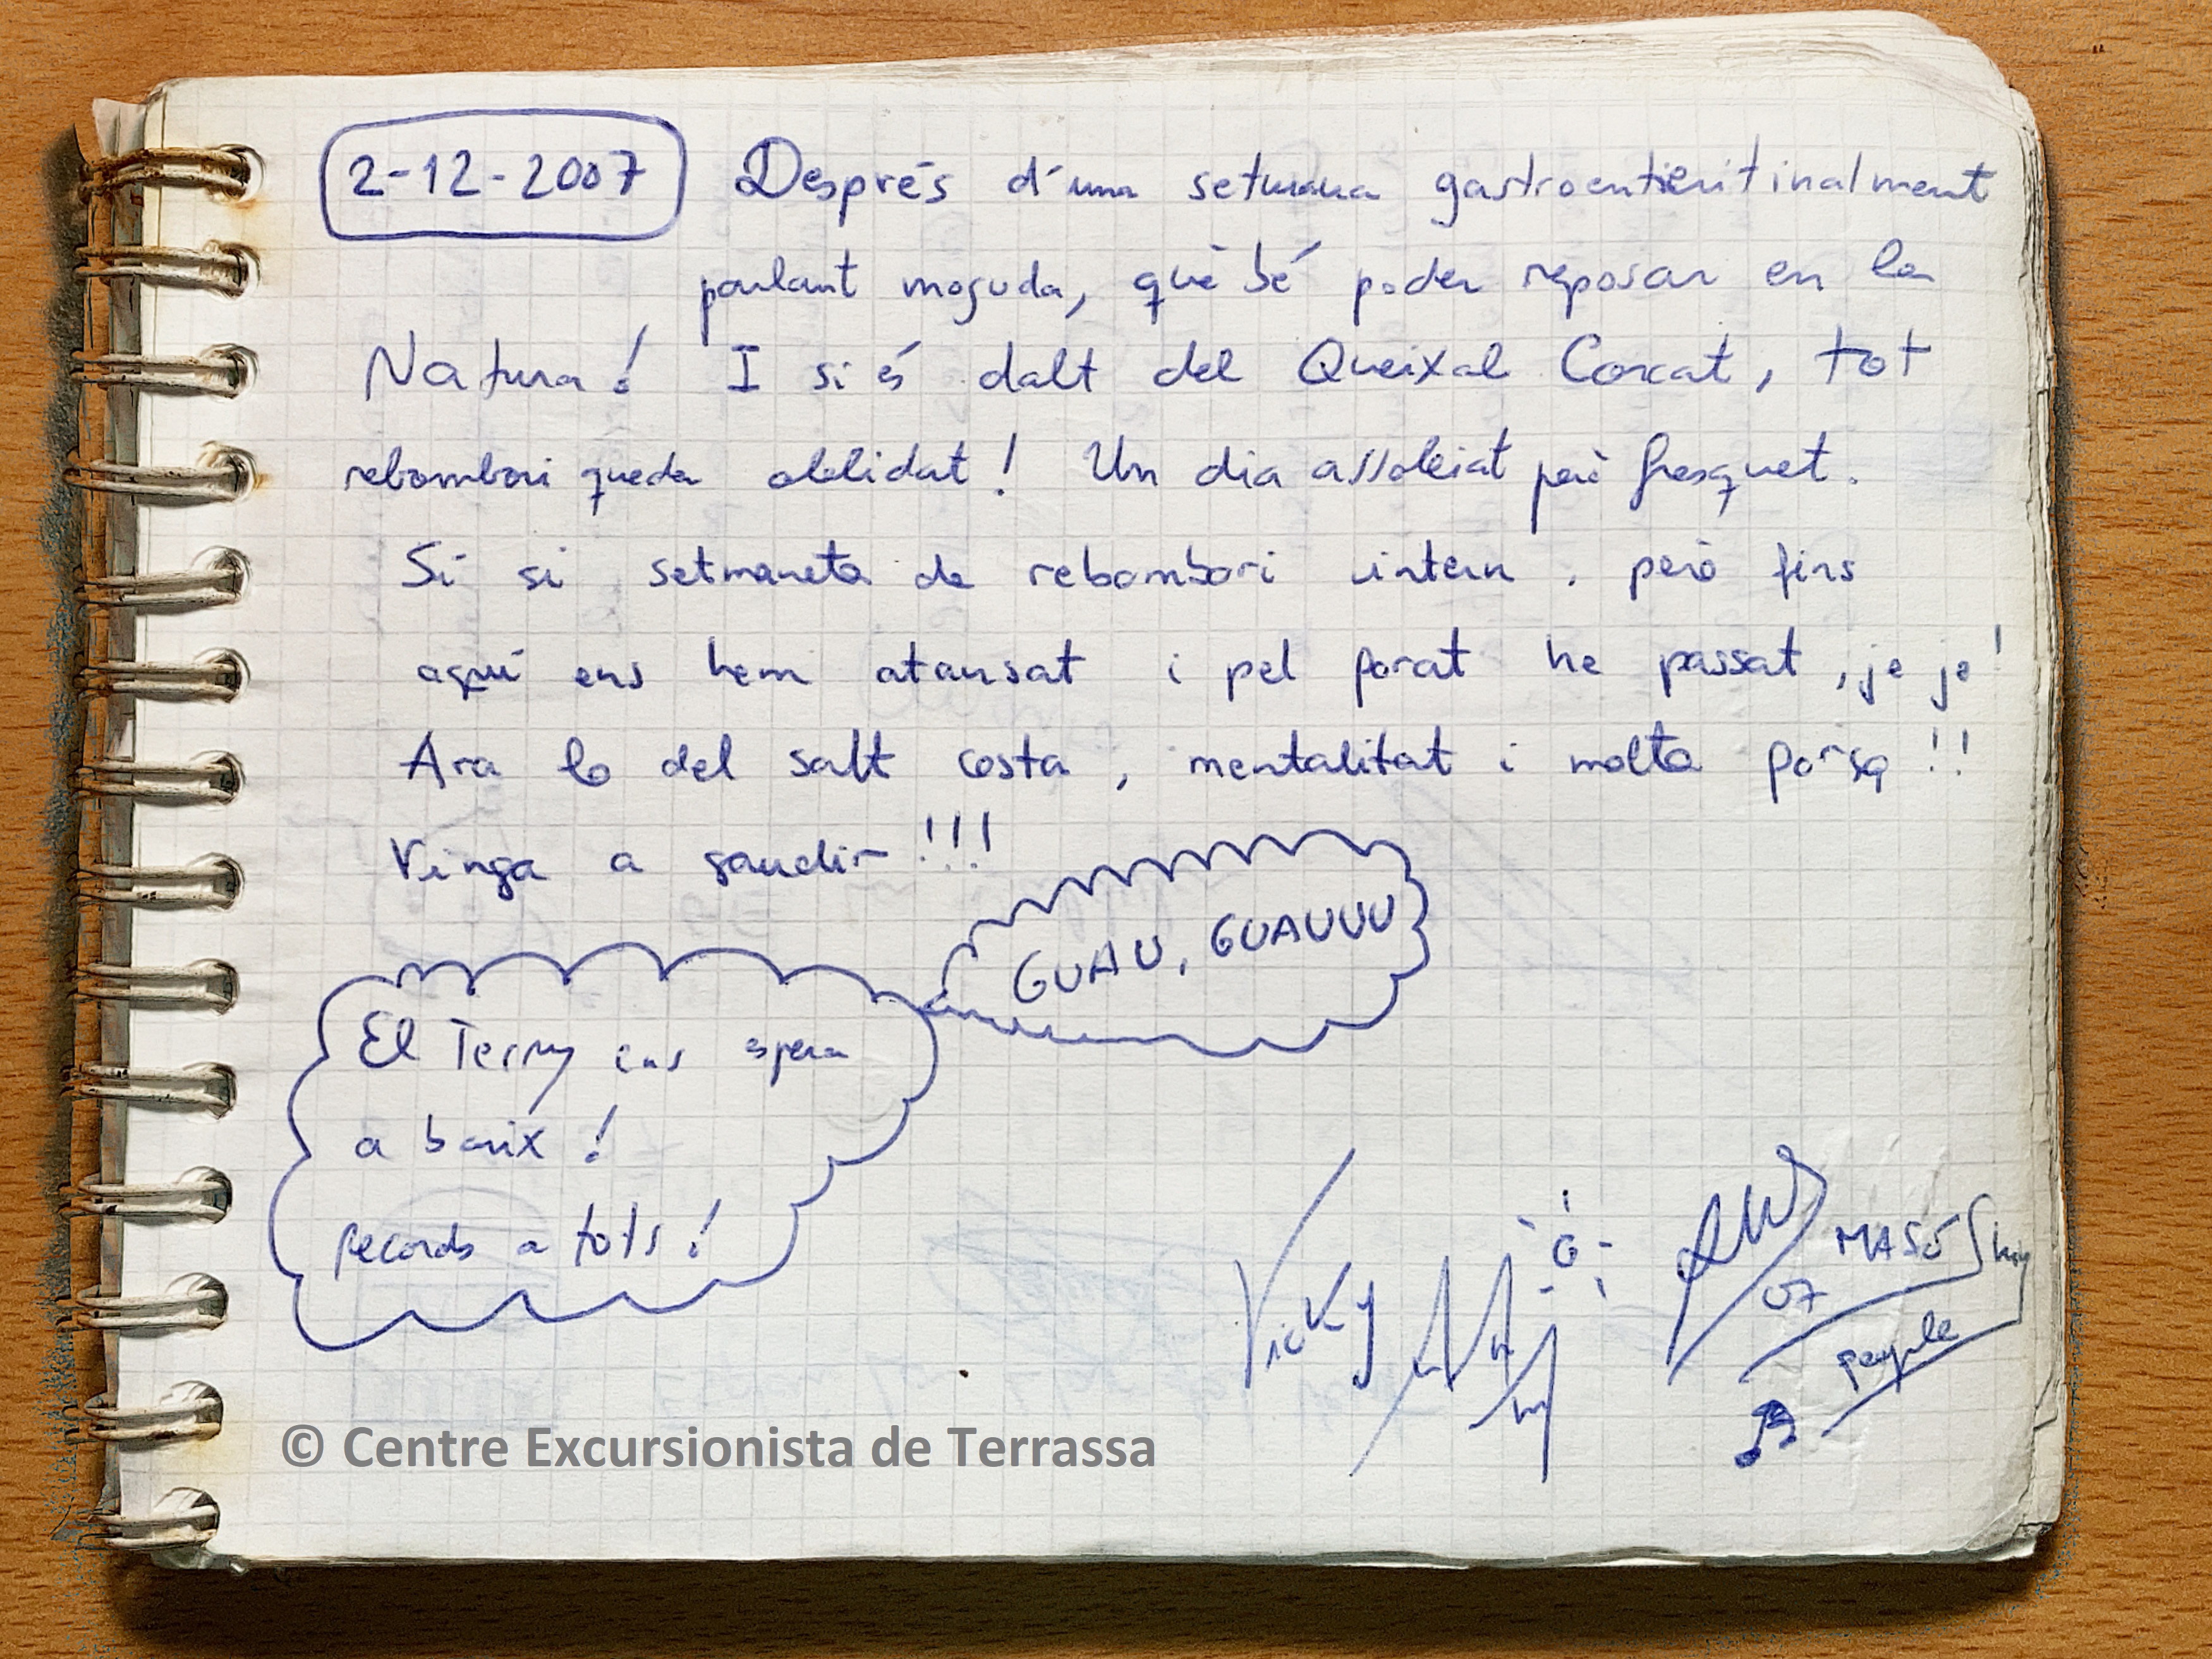 2-12-2007 Després d'una setmana gastroentieritinalment
parlant moguda, què bé poder reposar en la
Natura! I si és dalt del Queixal Corcat, tot
rebombori queda oblidat! Un dia assoleiat però fresquet.
Si si setmaneta de rebombori intern. però fins
aquí ens hem atansat i pel forat he passat, je je!
Ara lo del salt costa, mentalitat i molta força!!
Vinga a gaudir!!!
GUAU, GUAUUU
El Terry ens espera
a baix!
Records a tots!
Vicky
07
MASÓ
people
© Centre Excursionista de Terrassa